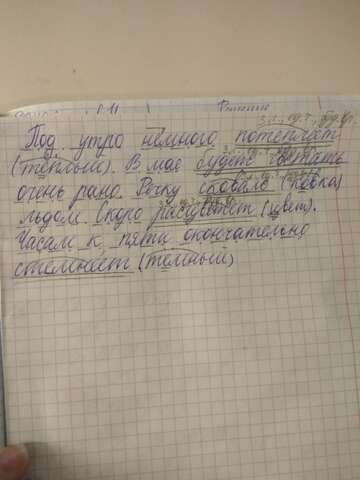 3л., ед.ч., буд.вр.
Под утро немного потеплеет
(тёплый). В мае будет светать
очень рано. Речку сковало (ковка)
льдом. Скоро рассветет (цвет).
Часам к пяти окончательно
стемнеет (тёмный)